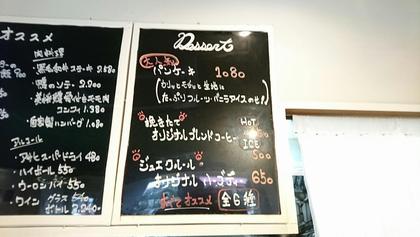 オススメ
肉料理
黒毛和牛ステーキ 2.680
鴨のソテー 2.200
コンフィ 1.380
自家製ハンバーグ 1.080
アルコール
アサヒスーパードライ 480
ハイボール 550
ウーロンハイ 550
ワイン グラス
ボトル
Dessert
大人気!!
パンケーキ 1080
カリッとモチッと生地に
たっぷりフルーツ・バニラアイスのせ!
挽きたて HOT
オリジナルブレンドコーヒー
ICE
500
ジュエクルール
オリジナル ハーブティー 650
すべてオススメ 全6種